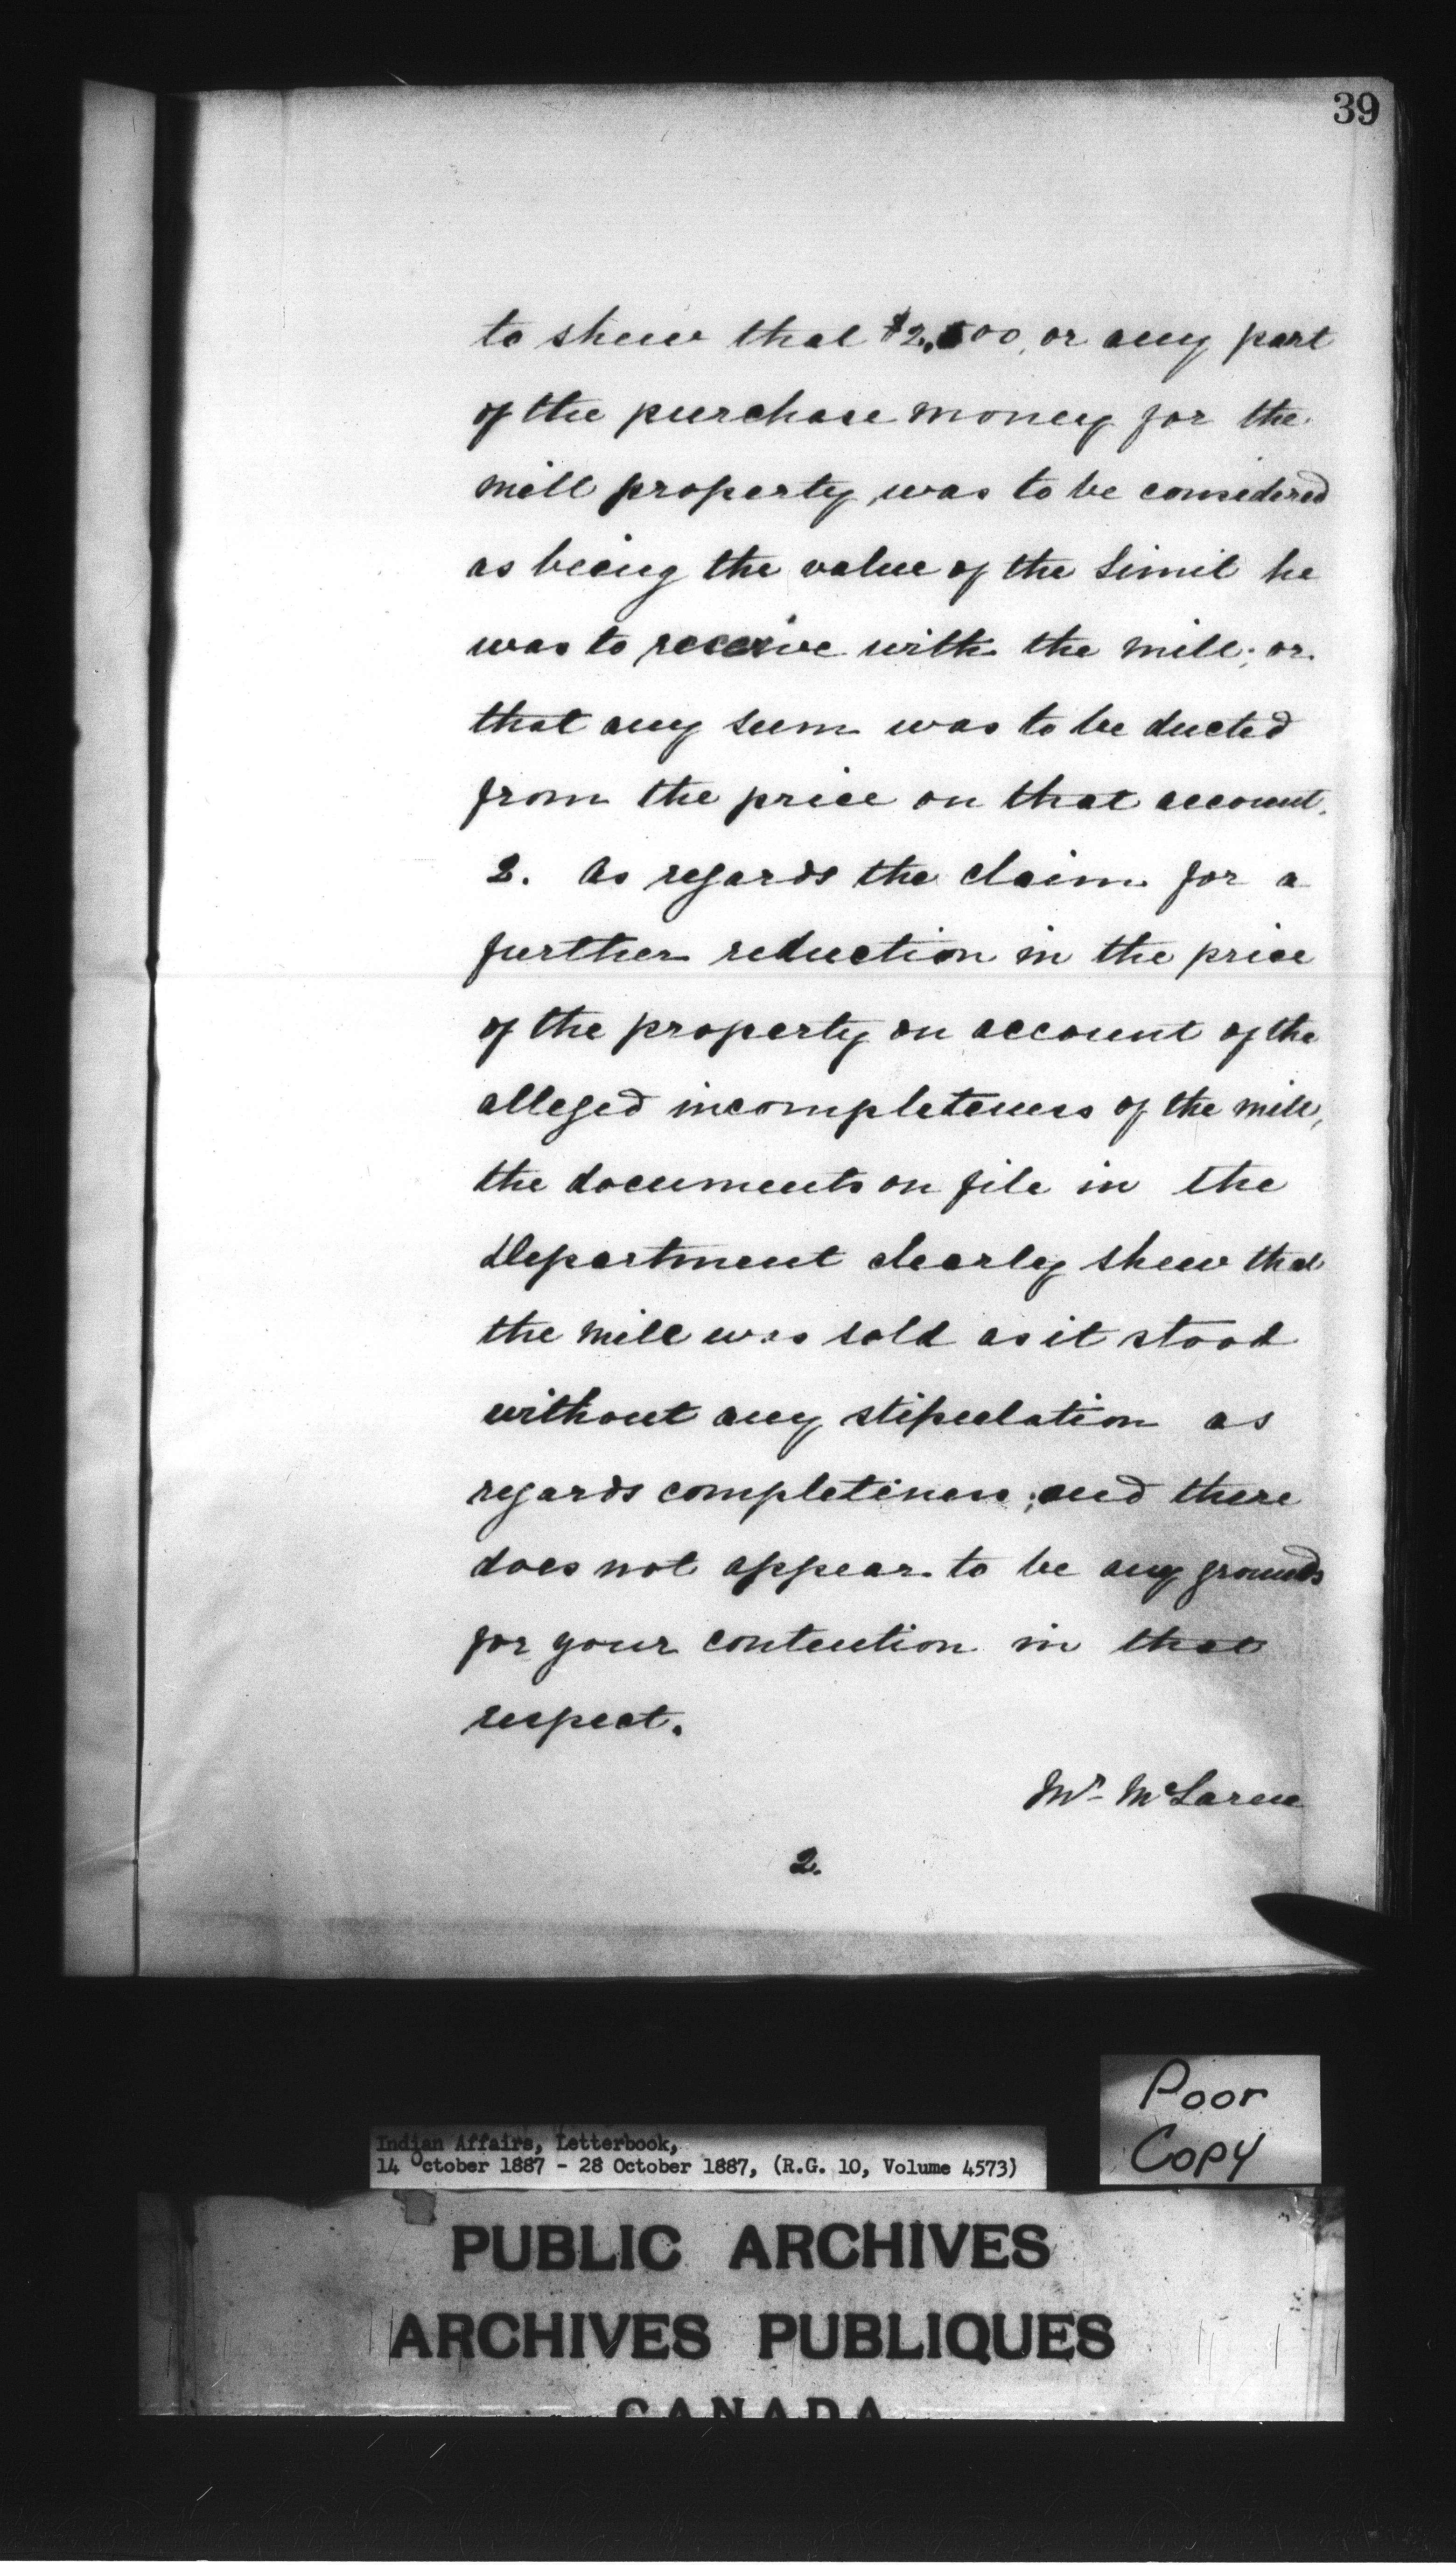 39
to shew that $2,500, or any part
of the purchase money for the
mill property was to be considered
as being the value of the limit he
was to receive with the mill; or
that any sum was to be ducted
from the price on that account.
2. As regards the claim for a
further reduction in the price
of the property on account of the
alleged incompleteness of the mill,
the documents on file in the
Department clearly shew that
the mill was sold as it stood
without any stipulation as
regards completeness; and there
does not appear to be any grounds
for your contention in that
respect.
Mr McLaren
2.
Poor
Copy
Indian Affairs, Letterbook,
14 October 1887 - 28 October 1887, (R.G. 10, Volume 4573)
PUBLIC ARCHIVES
ARCHIVES PUBLIQUES
CANADA